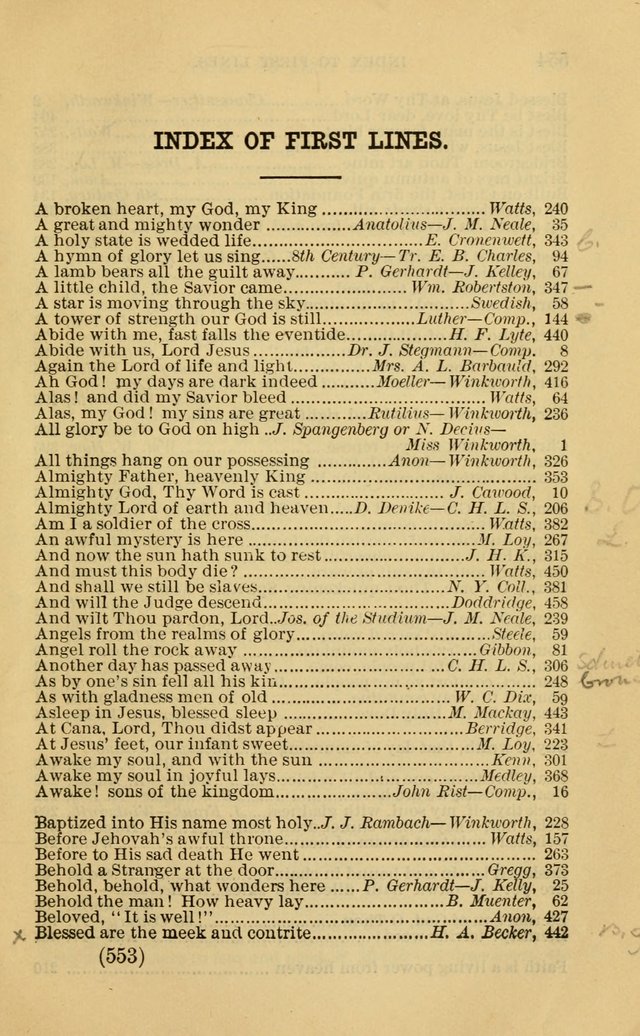 INDEX OF FIRST LINES.
A broken heart, my God, my King ............................. Watts, 240
A great and mighty wonder ............... Anatolius—J. M. Neale, 35
A holy state is wedded life ............................. E. Cronenwett, 343
A hymn of glory let us sing ..... 8th Century—Tr. E. B. Charles, 94
A lamb bears all the guilt away .......... P. Gerhardt—J. Kelley, 67
A little child, the Savior came ..................... Wm. Robertston, 347
A star is moving through the sky ............................. Swedish, 58
A tower of strength our God is still ................. Luther—Comp., 144
Abide with me, fast falls the eventide .................. H. F. Lyte, 440
Abide with us, Lord Jesus ................ Dr. J. Stegmann—Comp. 8
Again the Lord of life and light .............. Mrs. A. L. Barbauld, 292
Ah God! my days are dark indeed ........... Moeller—Winkworth, 416
Alas! and did my Savior bleed .................................. Watts, 64
Alas, my God! my sins are great ........... Rutilius—Winkworth, 236
All glory be to God on high .. J. Spangenberg or N. Decius—
Miss Winkworth, 1
All things hang on our possessing ............ Anon—Winkworth, 326
Almighty Father, heavenly King ........................................ 353
Almighty God, Thy Word is cast ........................ J. Cawood, 10
Almighty Lord of earth and heaven ..... D. Denike—C. H. L. S., 206
Am I a soldier of the cross ........................................ Watts, 382
An awful mystery is here ........................................ M. Loy, 267
And now the sun hath sunk to rest ......................... J. H. K., 315
And must this body die? ......................................... Watts, 450
And shall we still be slaves ................................. N. Y. Coll., 381
And will the Judge descend ................................. Doddridge, 458
And wilt Thou pardon, Lord .. Jos. of the Studium—J. M. Neale, 239
Angels from the realms of glory .................................. Steele, 59
Angel roll the rock away ........................................ Gibbon, 81
Another day has passed away ............................ C. H. L. S., 306
As by one's sin fell all his kin ............................................ 248
As with gladness men of old ................................ W. C. Dix, 59
Asleep in Jesus, blessed sleep ............................ M. Mackay, 443
At Cana, Lord, Thou didst appear .......................... Berridge, 341
At Jesus' feet, our infant sweet ................................. M. Loy, 223
Awake my soul, and with the sun ............................. Kenn, 301
Awake my soul in joyful lays .................................. Medley, 368
Awake! sons of the kingdom ..................... John Rist—Comp., 16
Baptized into His name most holy .. J. J. Rambach—Winkworth, 228
Before Jehovah's awful throne ................................... Watts, 157
Before to His sad death He went ....................................... 263
Behold a Stranger at the door .................................... Gregg, 373
Behold, behold, what wonders here ..... P. Gerhardt—J. Kelly, 25
Behold the man! How heavy lay ......................... B. Muenter, 62
Beloved, "It is well!" ............................................... Anon, 427
x Blessed are the meek and contrite ...................... H. A. Becker, 442
(553)